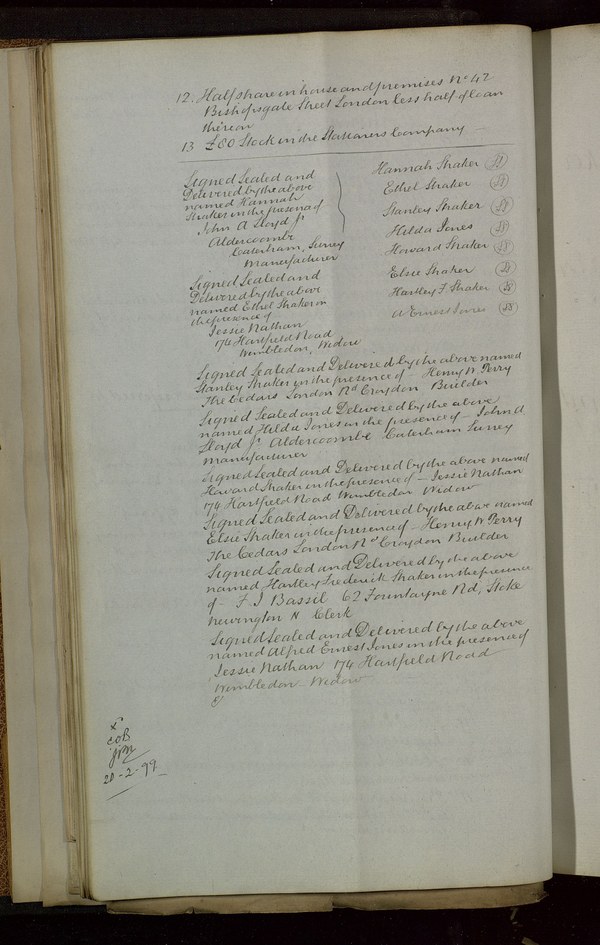 12. Half share in house and premises No 42
Bishopsgate Street London less half of loan
thereon
13 £80 Stock in the Stationers Company
Signed Sealed and
Delivered by the above
named Hannah
Shaker in the presence of
John A Lloyd Jr
Aldercoombe
Caterham, Surrey
Manufacturer
Signed Sealed and
Delivered by the above
named Ethel Shaker in
the presence of
Jessie Nathan
174 Hartfield Road
Wimbledon, Widow
Hannah Shaker
Ethel Shaker
Stanley Shaker
Hilda Jones
Howard Shaker
Elsie Shaker
Hartley F Shaker
A Ernest Jones
Signed Sealed and Delivered by the above named
Stanley Shaker in the presence of - Henry W. Perry
The Cedars London Rd Croydon Builder
Signed Sealed and Delivered by the above
named Hilda Jones in the presence of - John A
Lloyd Jr Aldercoombe Caterham Surrey
Manufacturer
Signed Sealed and Delivered by the above named
Howard Shaker in the presence of - Jessie Nathan
174 Hartfield Road Wimbledon Widow
Signed Sealed and Delivered by the above named
Elsie Shaker in the presence of - Henry W Perry
The Cedars London Rd Croydon Builder
Signed Sealed and Delivered by the above
named Hartley Frederick Shaker in the presence
of - F J Bassil 62 Fountayne Rd, Stoke
Newington N Clerk
Signed Sealed and Delivered by the above
named Alfred Ernest Jones in the presence of
Jessie Nathan 174 Hartfield Road
Wimbledon - Widow
x
COB
20-2-99